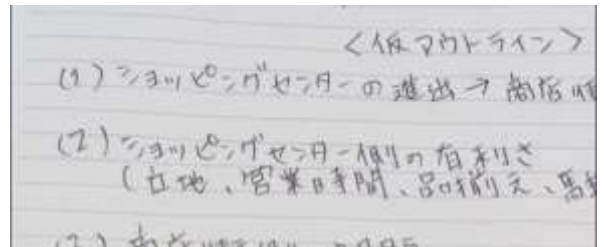 <仮アウトライン>
(1) ショッピングセンターの進出→商店
(2) ショッピングセンター側の有利さ
(立地、営業時間、品揃え、